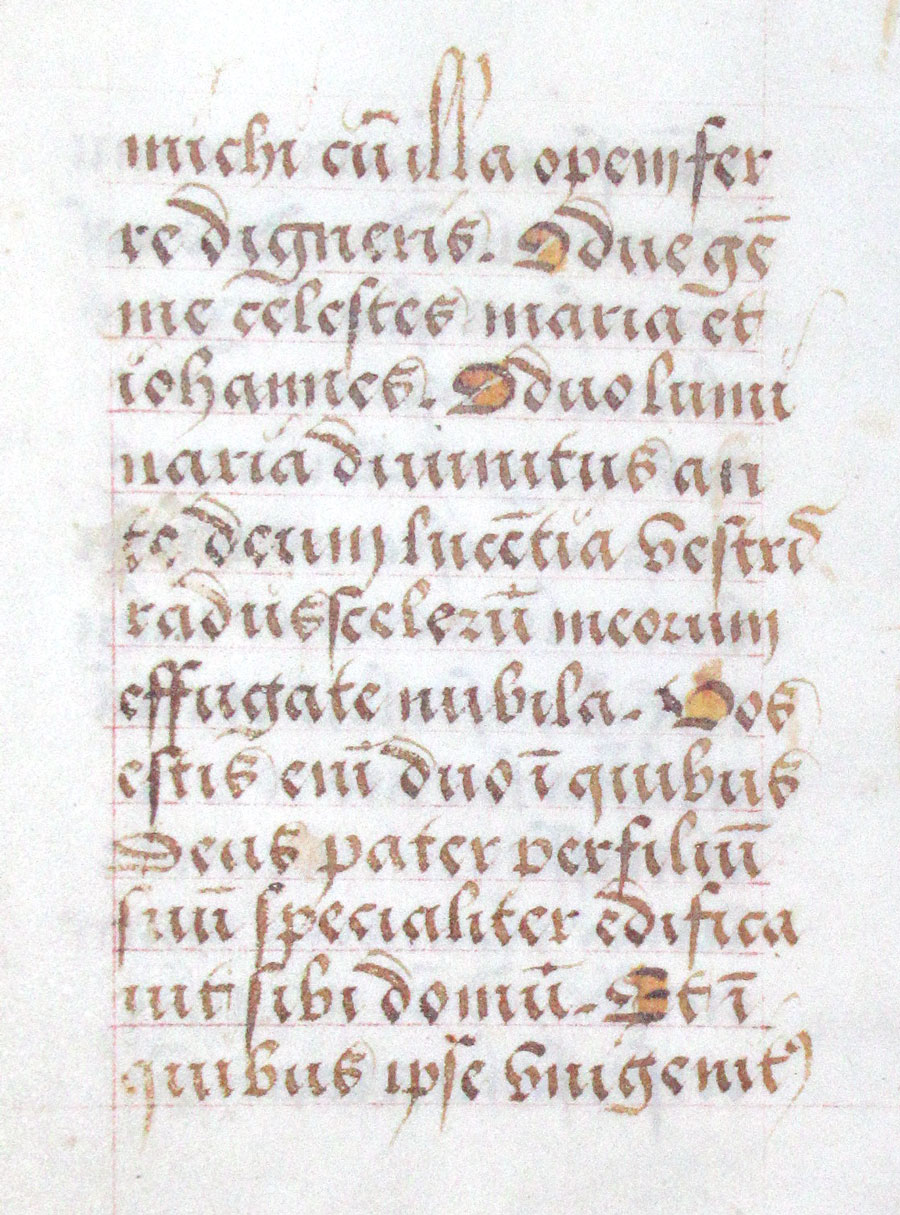 michi cū illa opem fer
re digneris. O due gē
me celestes maria et
iohannes. O duo lumi
naria diuinitus an
te deum lucētia vestri͂s
radiis scelerū meorum
effugate nubila. Vos
estis eni͂ duo ī quibus
Deus pater per filiū
suū specialiter edifica
uit sibi domū. Et ī
quibus ip̄e vnigenitꝰ